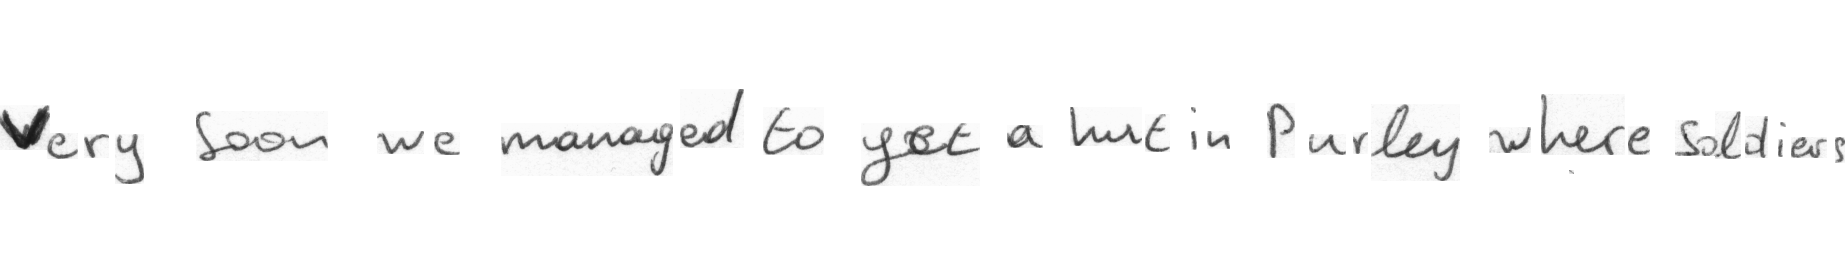 Very soon we managed to get a hut in Purley where soldiers